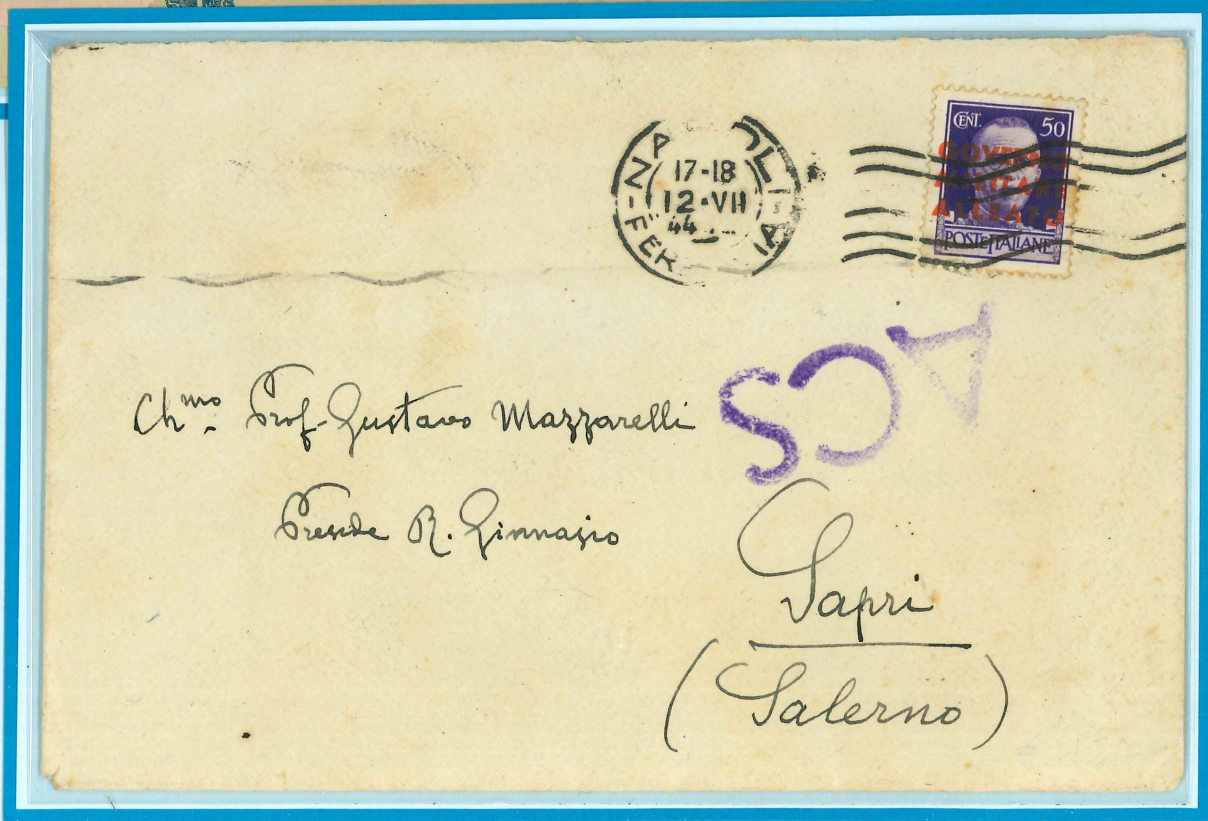 NAPOLI
FERROVIA
17-18
12·VII
44
CENT. 50
GOVERNO
MILITARE
ALLEATO
POSTE ITALIANE
ACS
Ch.mo Prof. Gustavo Mazzarelli
Preside R. Ginnasio
Sapri
(Salerno)